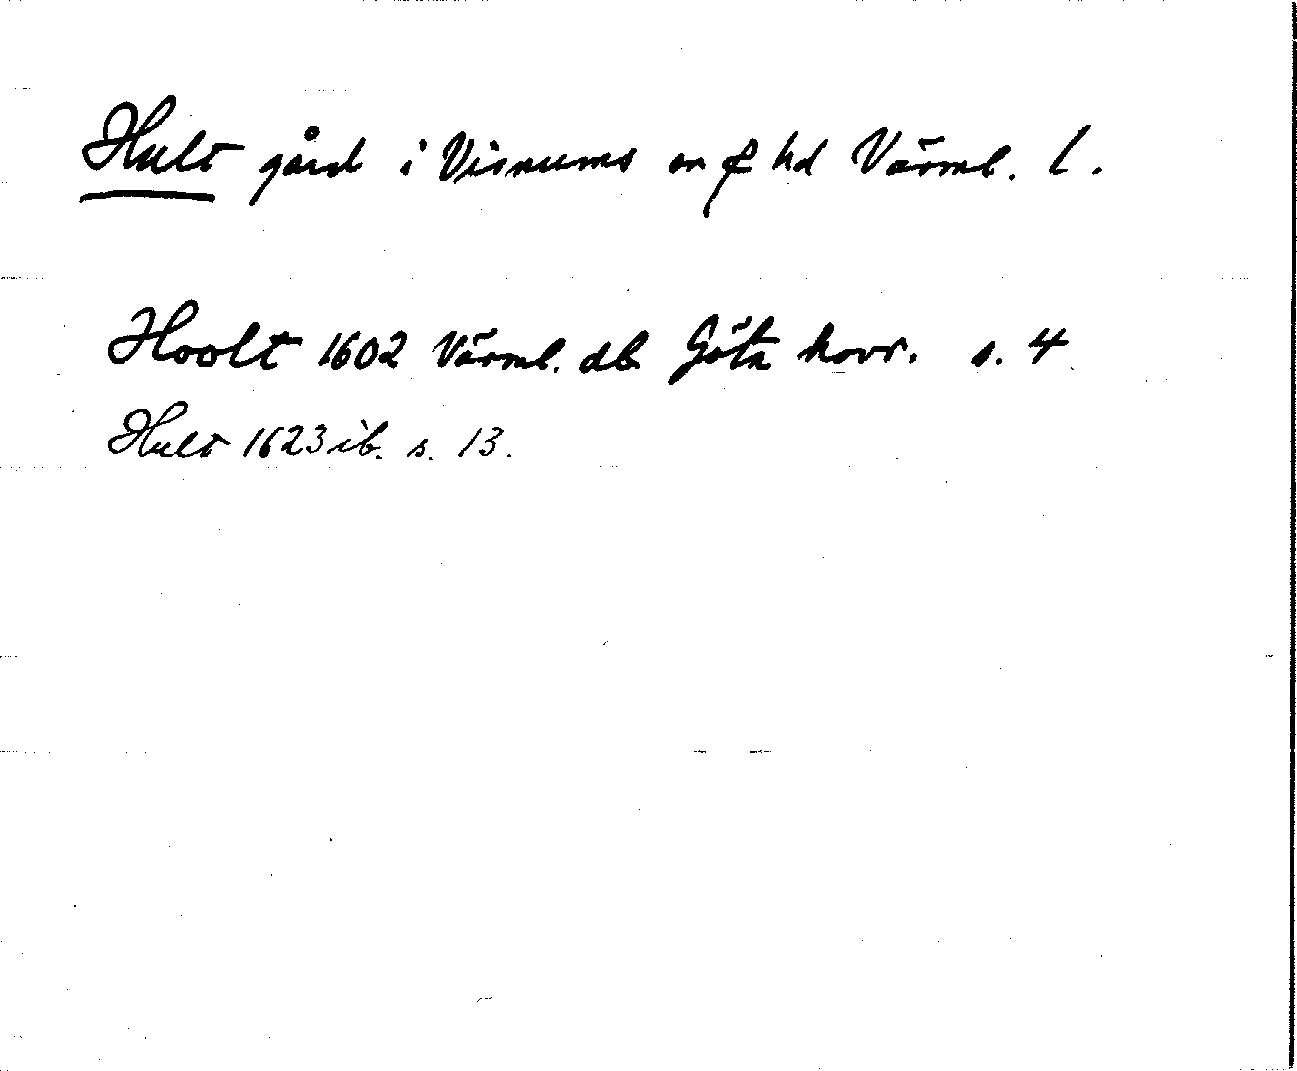 Hult gård i Visnums sn o hd Värml. l.
Hoolt 1602 Värml. db Göta hovr. s. 4
Hult 1623 ib. s. 13.